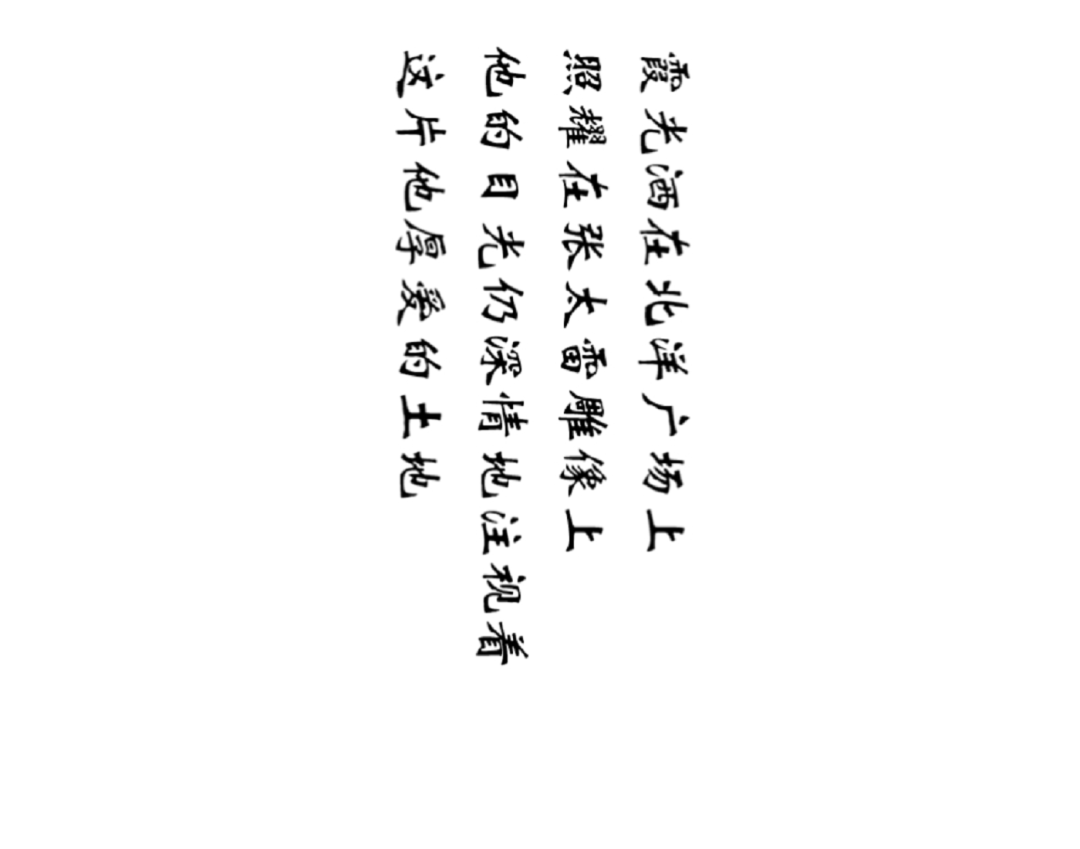 霞光洒在北洋广场上
照耀在张太雷雕像上
他的目光仍深情地注视着
这片他厚爱的土地